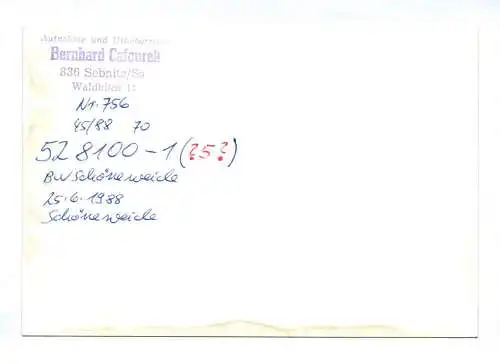 Aufnahme und Urheberrecht
Bernhard Cafourek
836 Sebnitz/Sa
Waldblick 11
Nr. 756
45/88 70
52 8100-1 (?5?)
BW Schöneweide
25.6.1988
Schöneweide